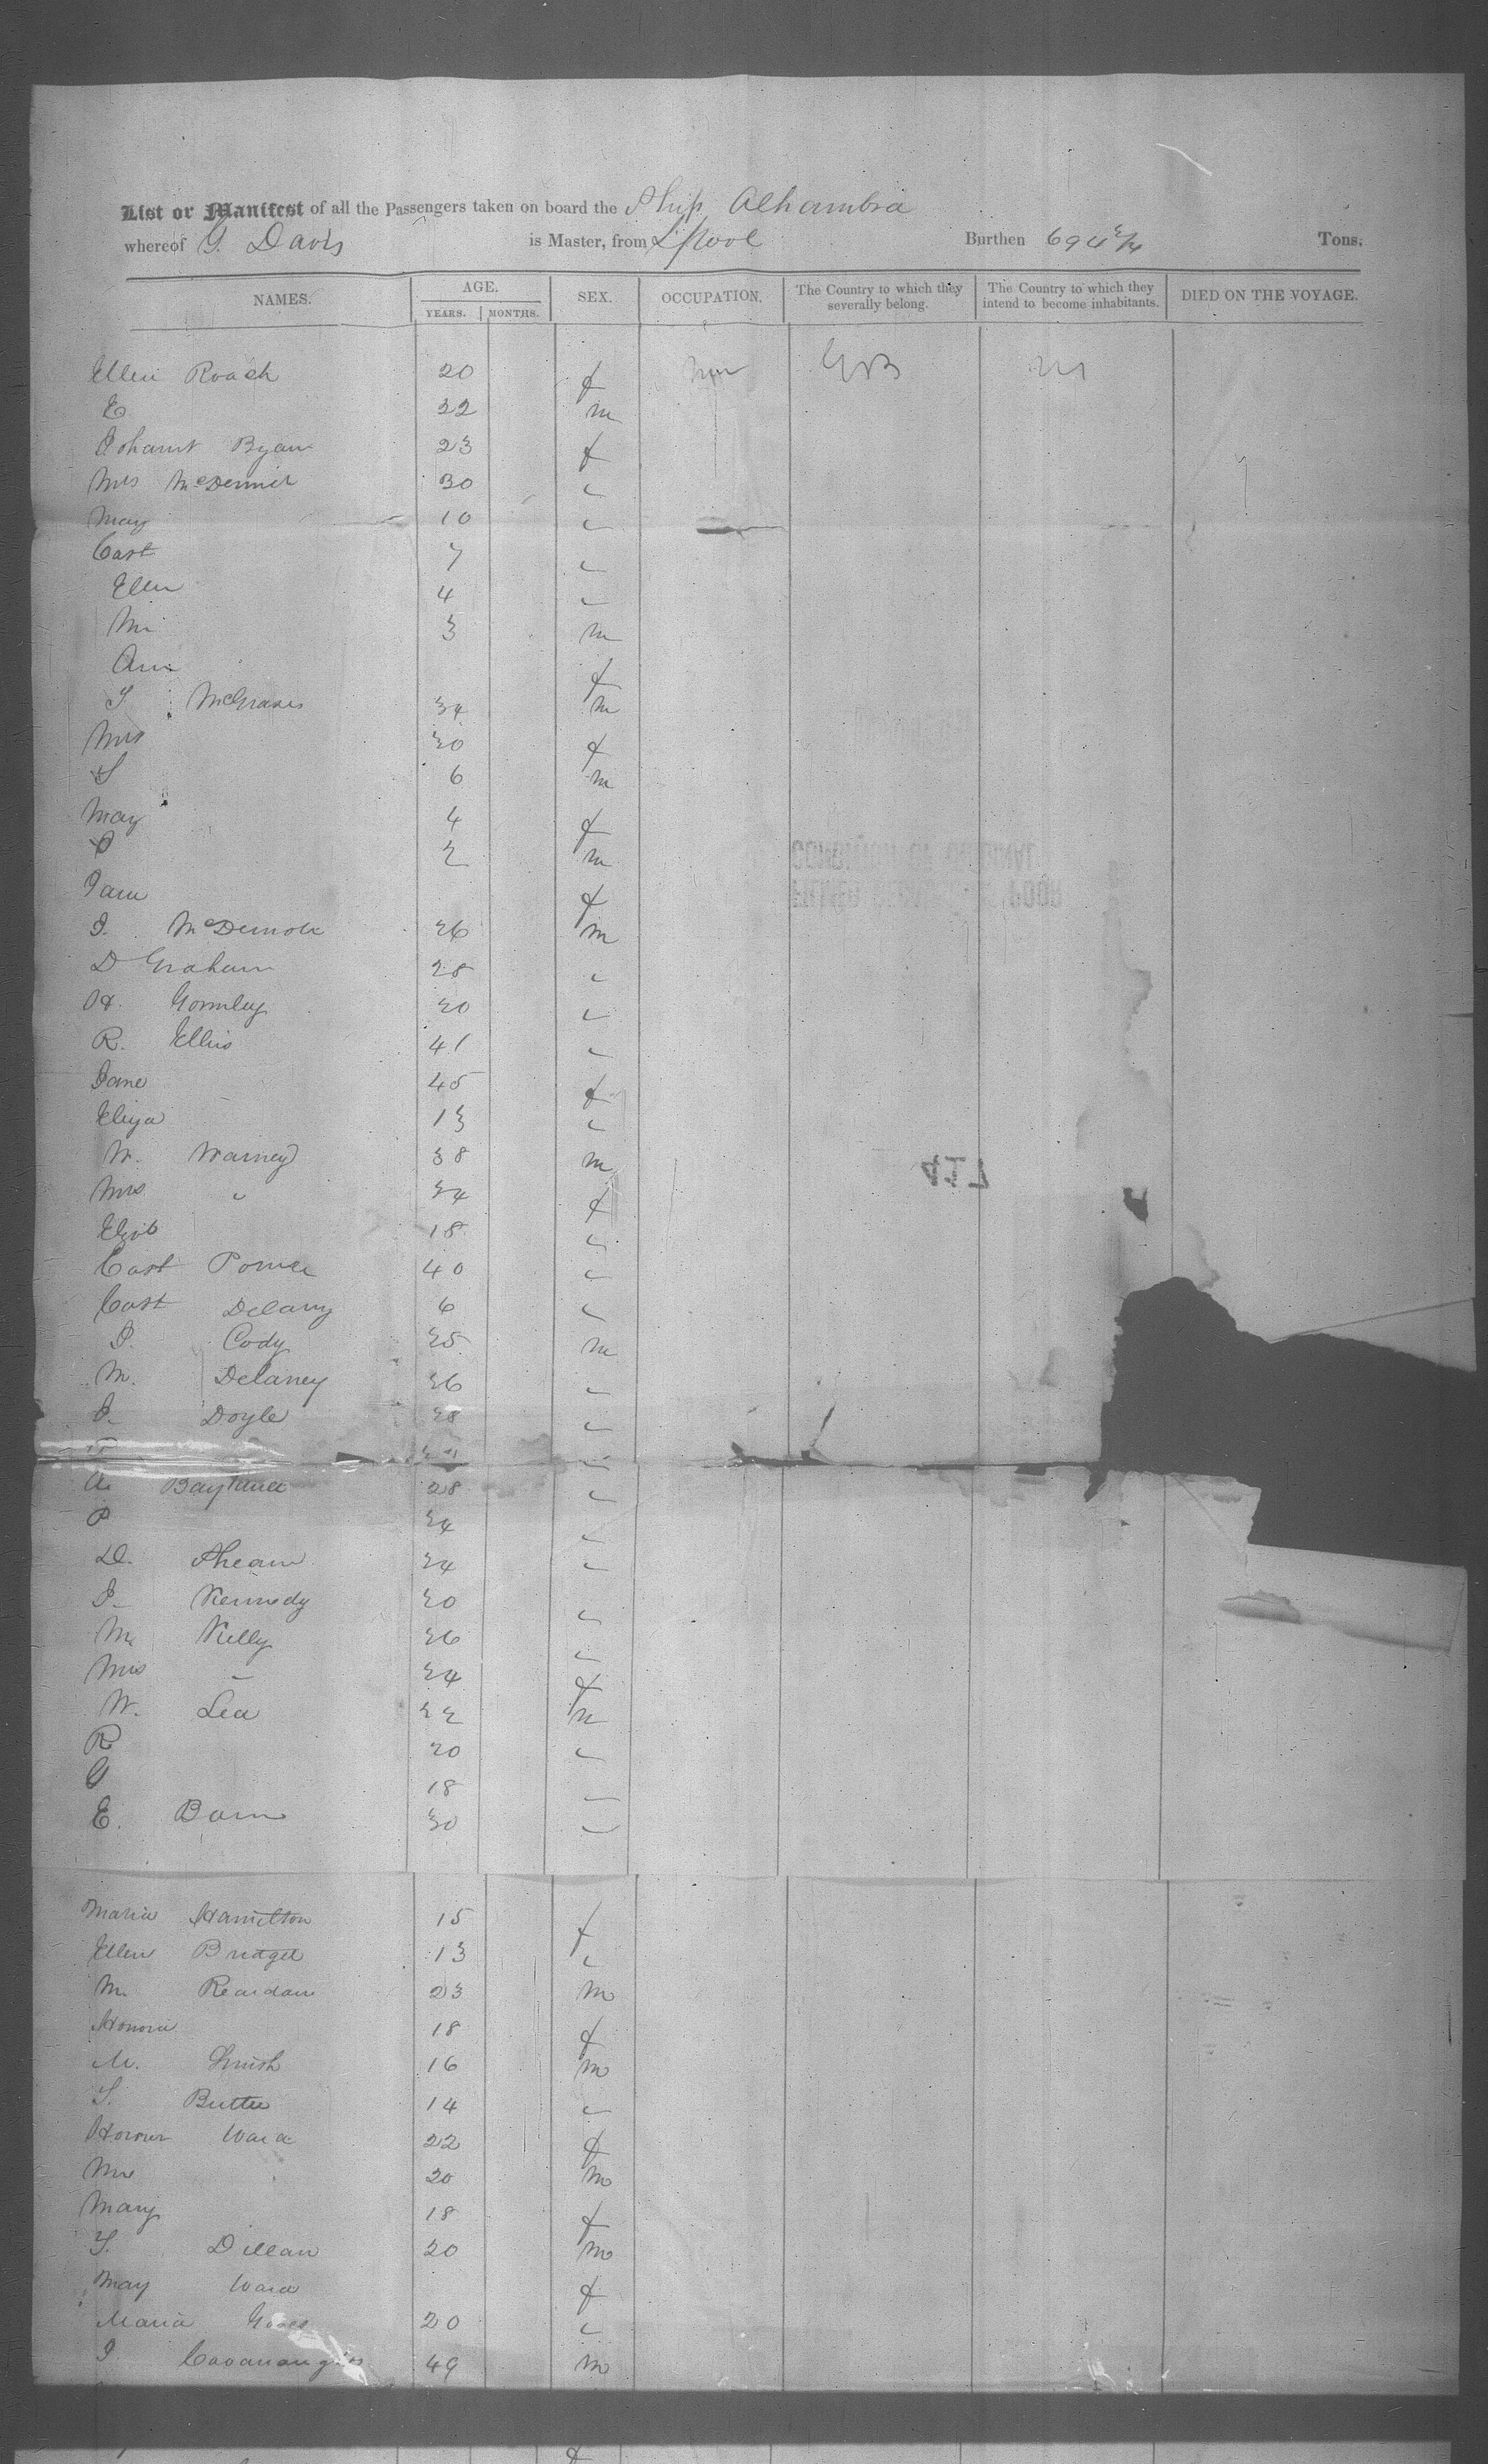 List or Manifest of all the Passengers taken on board the Ship Alhambra
whereof G. Davis is Master, from L'pool Burthen 694 Tons.
NAMES. AGE. YEARS. MONTHS. SEX. OCCUPATION. The Country to which they severally belong. The Country to which they intend to become inhabitants. DIED ON THE VOYAGE.
Ellen Roach 20 f GB
E 22 m
Ryan 23 f
Mrs McDermit 30 "
May 10 "
Cath 7 "
Ellen 4 "
Mi 3 m
Ann f
T McGraves 34 m
Mrs 30 f
S 6 m
May 4 f
P 2 m
Jane f
J. McDermott 26 m
D Graham 28 "
H. Gormley 20 "
R. Ellis 41 "
Jane 45 f
Eliza 13 "
W. Warney 38 m
Mrs " 34 f
Elizb 18 "
Cath Power 40 "
Cath Delany 6 "
J. Cody 25 m
M. Delaney 26 "
J. Doyle 28 "
A. 28 "
P 24 "
D. Ahearn 24 "
J. Kennedy 20 "
M. Kelly 26 "
Mrs " 24 f
W. Lea 22 m
R 20 "
G 18 "
E. Barn 30 "
Maria Hamilton 15 f
Ellen Bridget 13 "
M. Reardan 23 m
Honora 18 f
M. Smith 16 m
T. Butler 14 "
Honour Ward 22 f
20 m
Mary 18 f
T. Dillan 20 m
May Ward f
Maria 20 "
J Cavanaugh 49 m